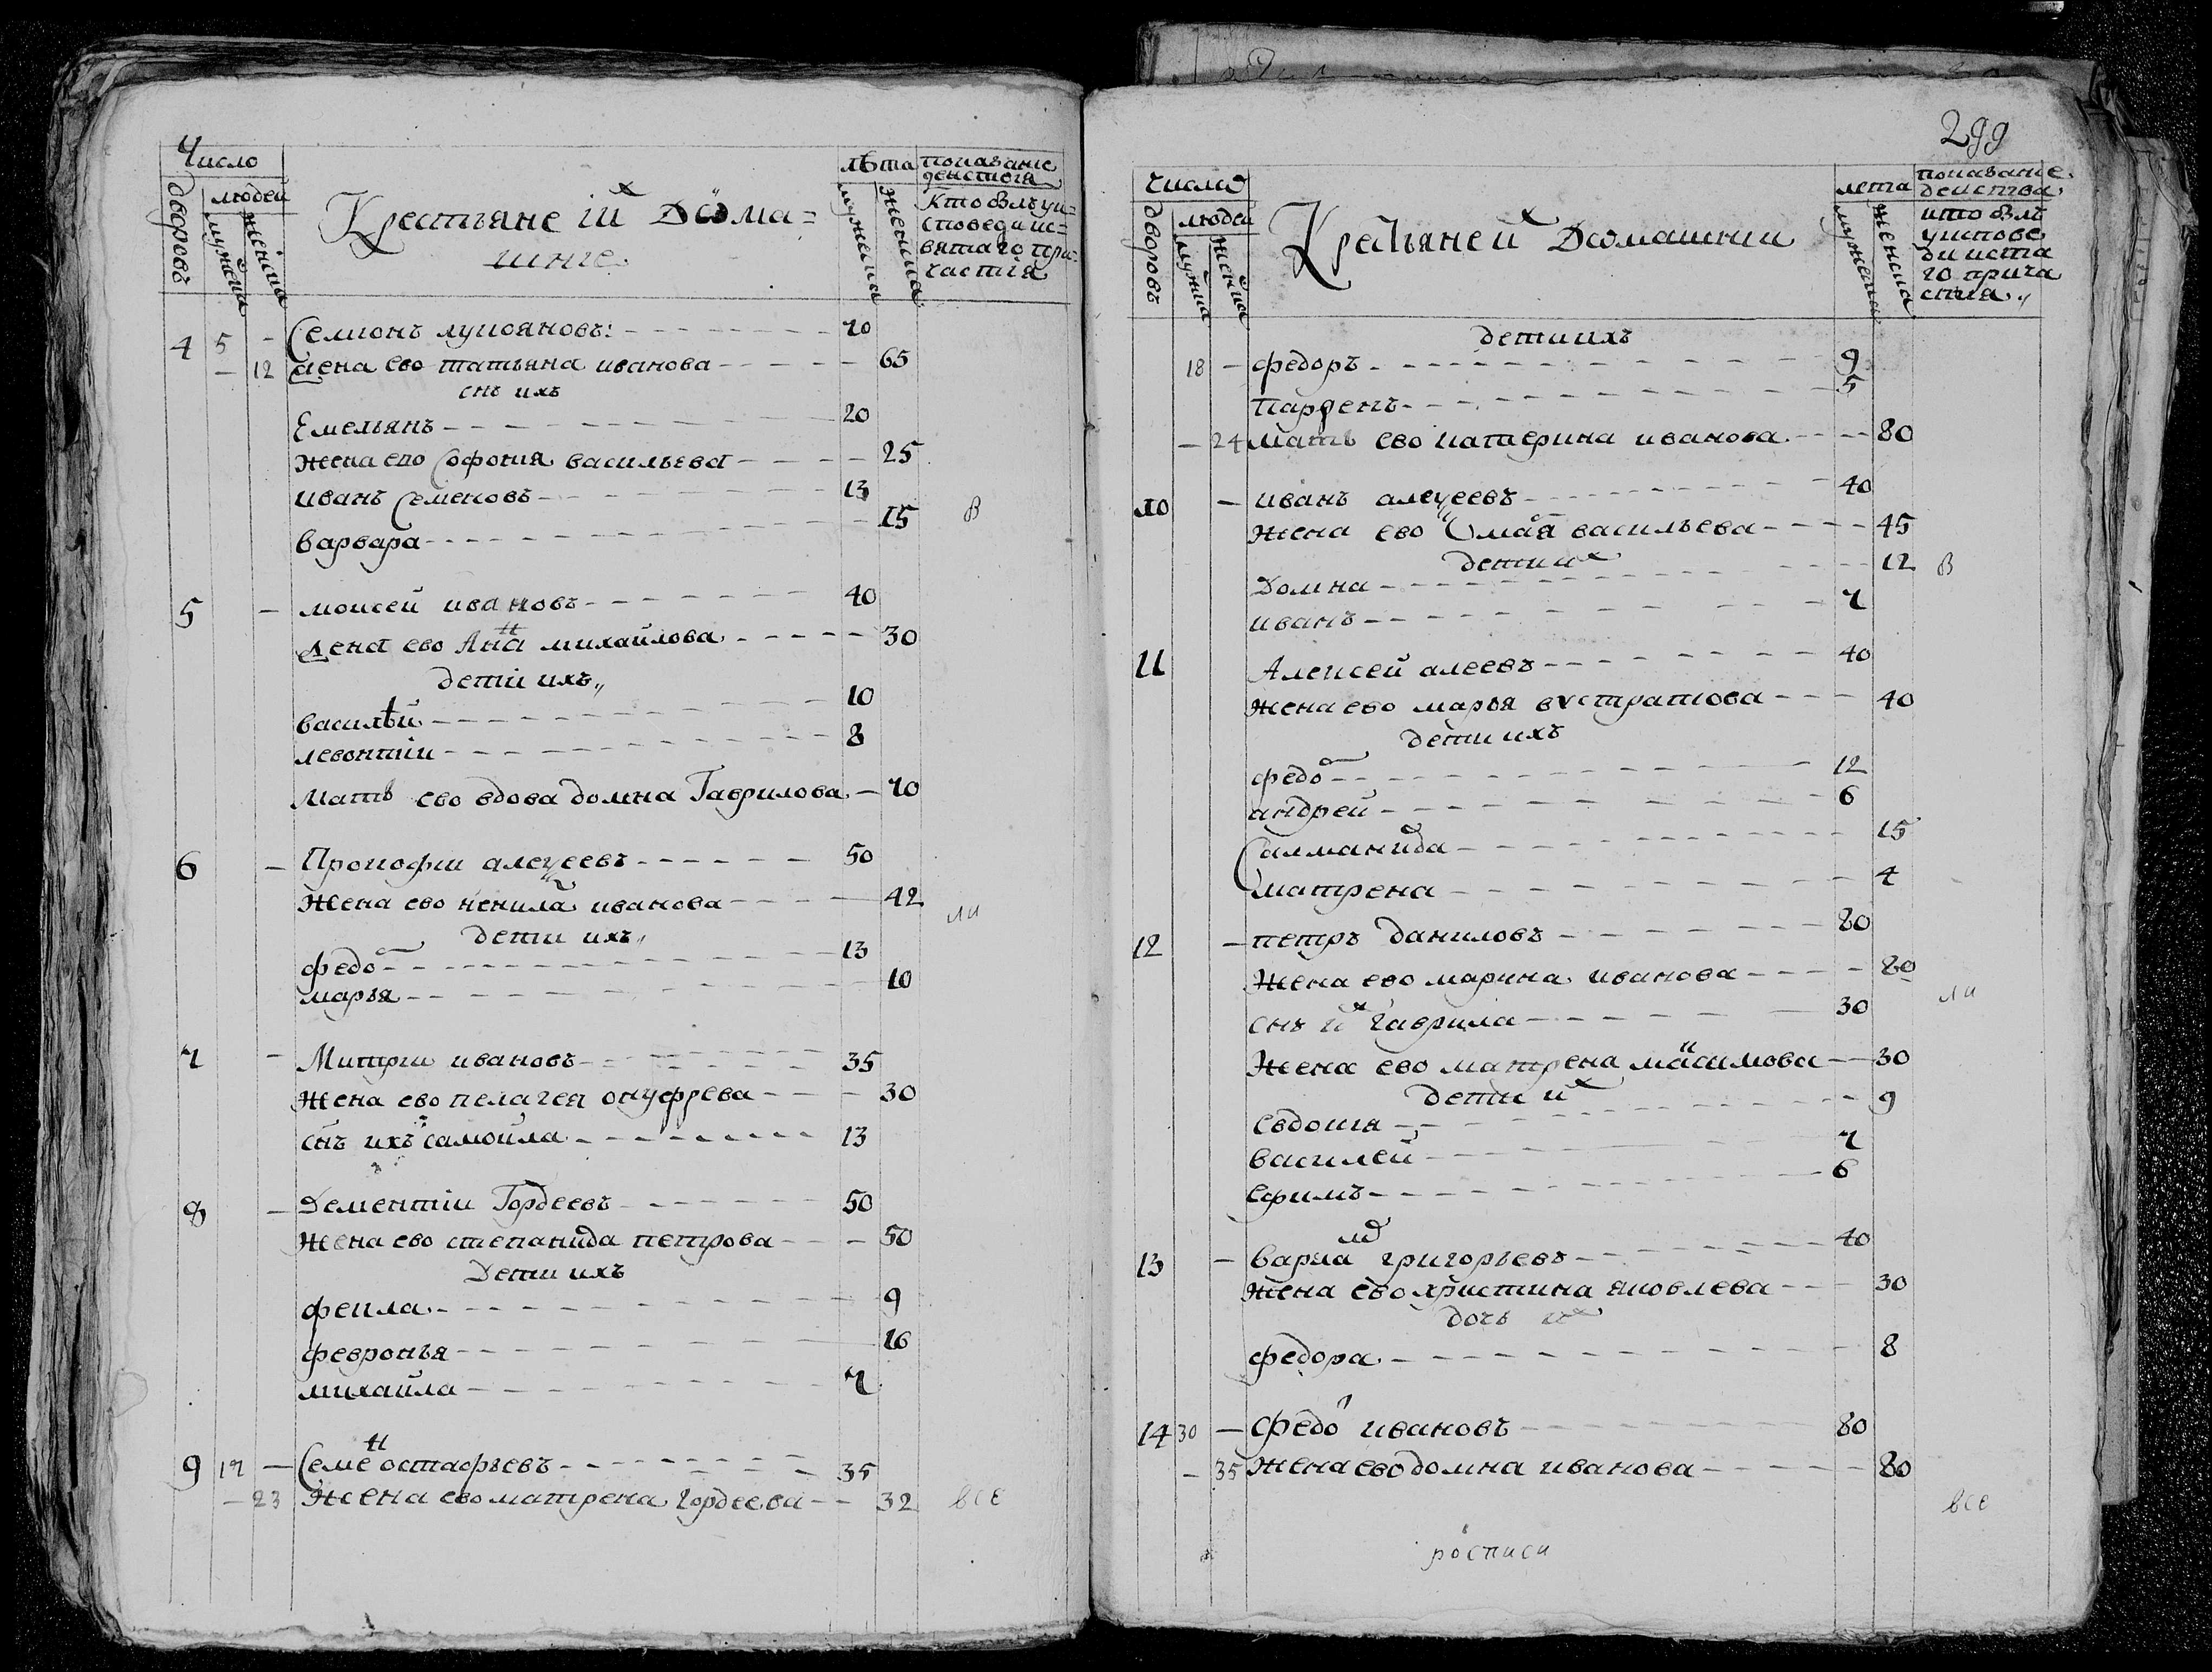 Число
людей
дворовъ
мужеска
женска
Крестьяне ихъ дома=
шние
лѣта
мужеска
женска
показание
действия
Кто былъ у и=
споведи и с=
вятаго при=
частия
4 5 - Семионъ лукояновъ: 70
- 12 жена ево татьяна иванова 65
снъ ихъ
Емельянъ 20
жена ево Софония васильева 25
иванъ Семеновъ 13
варвара 15 в
5 - моисей ивановъ 40
жена ево Анна михайлова 30
дети ихъ
василѣй 10
левонтии 8
мать ево вдова домна Гаврилова 70
6 - Прокофии алекѣевъ 50
жена ево ненила иванова 42
ли
дети ихъ
федоръ 13
марья 10
7 - Митрии ивановъ 35
жена ево пелагея онуфрева 30
снъ ихъ самоила 13
8 - Дементии Гордеевъ 50
жена ево степанида петрова 50
Дети ихъ
фекла 9
февронья 16
михаила 7
9 17 - Семенъ остафьевъ 35
- 23 жена ево матрена гордеева 32 все
299
число
людей
дворовъ
мужска
женска
Крестьяне ихъ домашнии
лета
мужеска
женска
показание
действа
кто былъ
у испове
ди и ста
го прича
стия
дети ихъ
18 - федоръ 9
парфенъ 5
- 24 мать ево катерина иванова 80
10 - иванъ алексеевъ 40
жена ево васильева 45
дети их
домна 12 в
иванъ 7
11 Алексей алеевъ 40
жена ево марья евстратиова 40
дети ихъ
федоръ 12
андрей 6
Саламанида 15
матрена 4
12 - петръ даниловъ 80
жена ево марина иванова 80
ли
снъ их гаврила 30
жена ево матрена максимова 30
дети их
евдокия 9
василей 7
ефимъ 6
13 - варлам григорьевъ 40
жена ево христина яковлева 30
дочь их
федора 8
14 30 - федоръ ивановъ 80
- 35 жена ево домна иванова 80
все
росписи